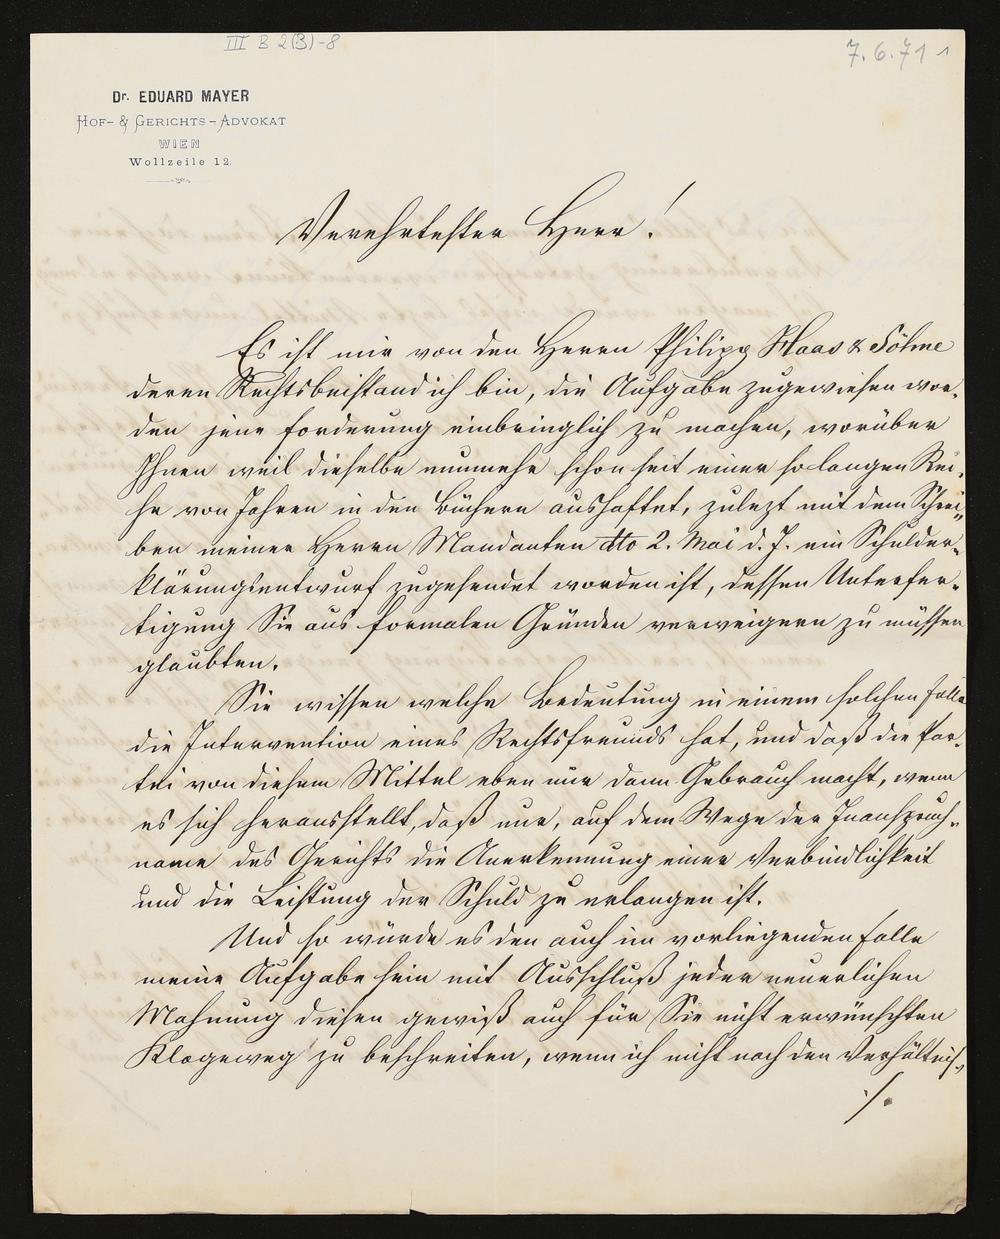 III B 2(3)-8
7.6.71 1
Dr. EDUARD MAYER
HOF- & GERICHTS-ADVOKAT
WIEN
Wollzeile 12.
Verehrtester Herr!
Es ist mir von den Herrn Philipp Haas & Söhne
deren Rechtsbeistand ich bin, die Aufgabe zugewiesen wor-
den jene Forderung einbringlich zu machen, worüber
Ihnen weil dieselbe nunmehr schon seit einer so langen Rei-
he von Jahren in den Büchern aushaftet, zulezt mit dem Schrei-
ben meiner Herrn Mandanten dto 2. Mai d. J. ein Schulder-
klärungsentwurf zugesendet worden ist, dessen Unterfer-
tigung Sie aus formalen Gründen verweigern zu müssen
glaubten.
Sie wissen welche Bedeutung in einem solchen Falle
die Intervention eines Rechtsfreunds hat, und daß die Par-
tei von diesem Mittel eben nur dann Gebrauch macht, wenn
es sich herausstellt, daß nur, auf dem Wege der Inanspruch-
name des Gerichts die Anerkennung einer Verbindlichkeit
und die Leistung der Schuld zu erlangen ist.
Und so würde es den auch im vorliegenden Falle
meine Aufgabe sein mit Ausschluß jeder neuerlichen
Mahnung diesen gewiß auch für Sie nicht erwünschten
Klageweg zu beschreiten, wenn ich nicht nach den Verhältnis-
./.